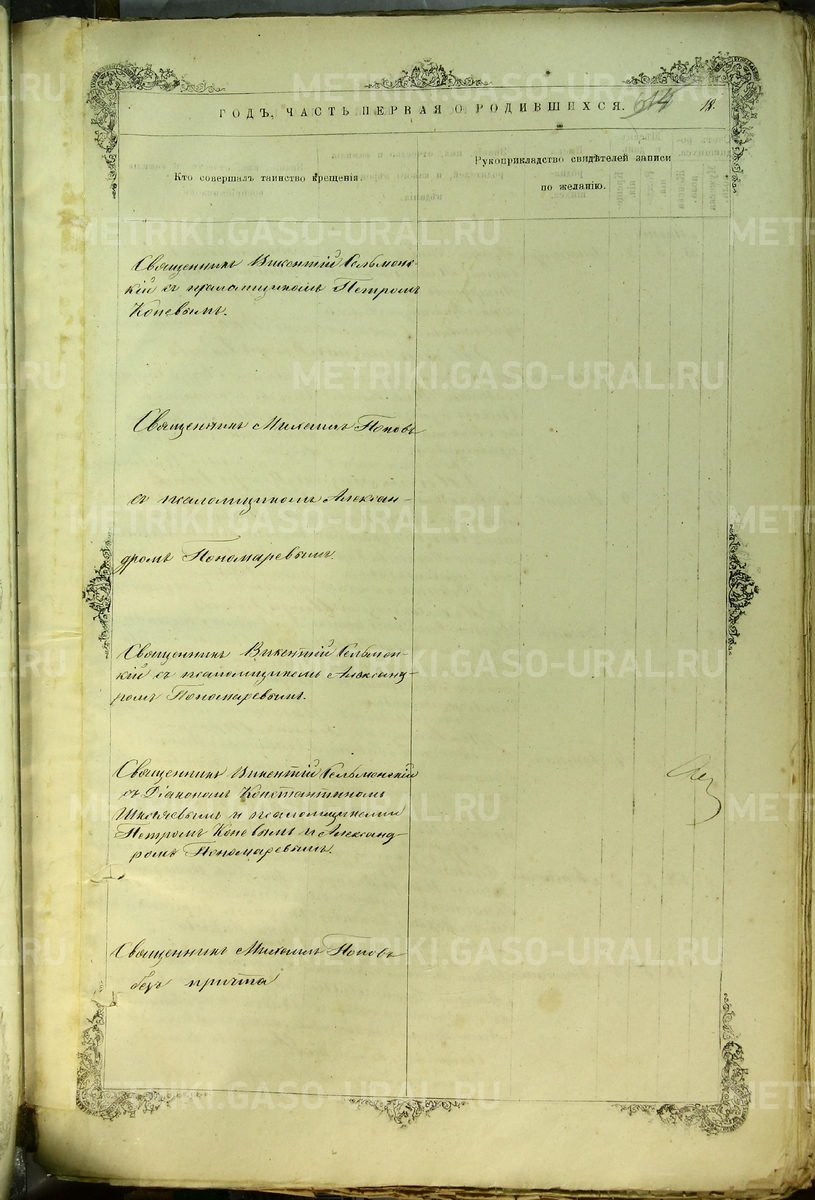 ГОДЪ, ЧАСТЬ ПЕРВАЯ О РОДИВШИХСЯ. 614 18
Кто совершалъ таинство крещенія.
Рукоприкладство свидѣтелей записи
по желанію.
Священникъ Викентій Сельменс-
кій съ псаломщикомъ Петромъ
Коневымъ.
Священникъ Михаилъ Поповъ
съ псаломщикомъ Алексан-
дромъ Пономаревымъ.
Священникъ Викентій
кій съ псаломщикомъ Александ-
ромъ Пономаревымъ.
Священникъ Викентій Сельменскій
съ Діакономъ Константиномъ
и псаломщиками
Петромъ Коневымъ и Александ-
ромъ Пономаревымъ.
Священникъ Михаилъ Поповъ
безъ причта
METRIKI.GASO-URAL.RU